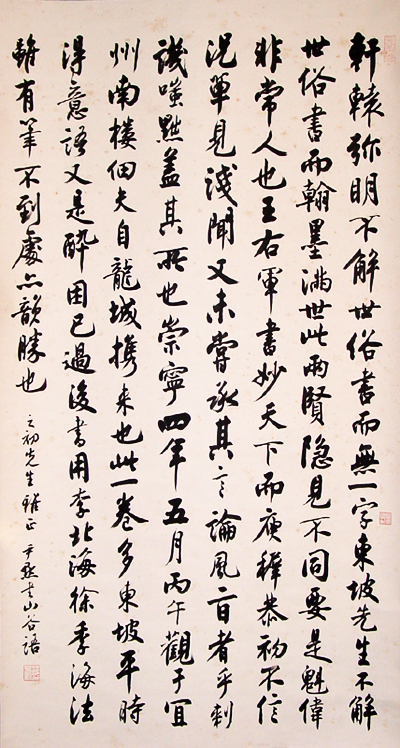 軒轅彌明不解世俗書而無一字東坡先生不解
世俗書而翰墨滿世此兩賢隐見不同要是魁偉
非常人也王右軍書妙天下而庾稺恭初不信
况單見淺聞又未嘗承其言論風旨者乎刺
譏嗤點蓋其所也崇寧四年五月丙午觀于宜
州南樓佃夫自龍城携来也此一卷多東坡平時
得意語又是醉困已過後書用李北海徐季海法
雖有筆不到處亦韻勝也
之初先生雅正 尹默書山谷語